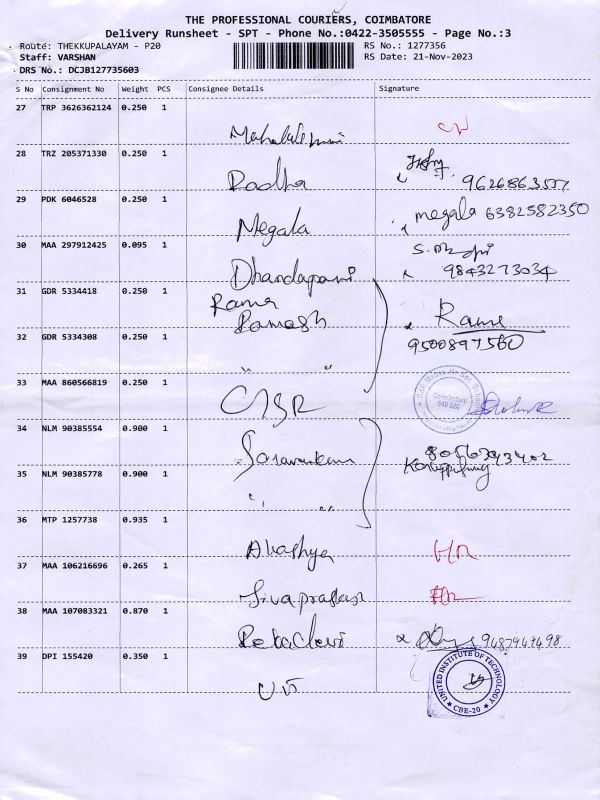 THE PROFESSIONAL COURIERS, COIMBATORE
Delivery Runsheet - SPT - Phone No.:0422-3505555 - Page No.:3
Route: THEKKUPALAYAM - P20 RS No.: 1277356
Staff: VARSHAN RS Date: 21-Nov-2023
DRS No.: DCJB127735603
S No Consignment No Weight PCS Consignee Details Signature
27 TRP 3626362124 0.250 1
28 TRZ 205371330 0.250 1
Radha
29 PDK 6046528 0.250 1
Megala megala 6382582350
30 MAA 297912425 0.095 1
Dhandapani 9843273034
31 GDR 5334418 0.250 1
Rama
Ramesh Rame
32 GDR 5334308 0.250 1 9500897560
" "
33 MAA 860566819 0.250 1
Coimbatore
34 NLM 90385554 0.900 1
35 NLM 90385778 0.900 1
" "
36 MTP 1257738 0.935 1
37 MAA 106216696 0.265 1
Sivaprakash
38 MAA 107083321 0.870 1
39 DPI 155420 0.350 1
UIT
UNITED INSTITUTE OF TECHNOLOGY
CBE-20